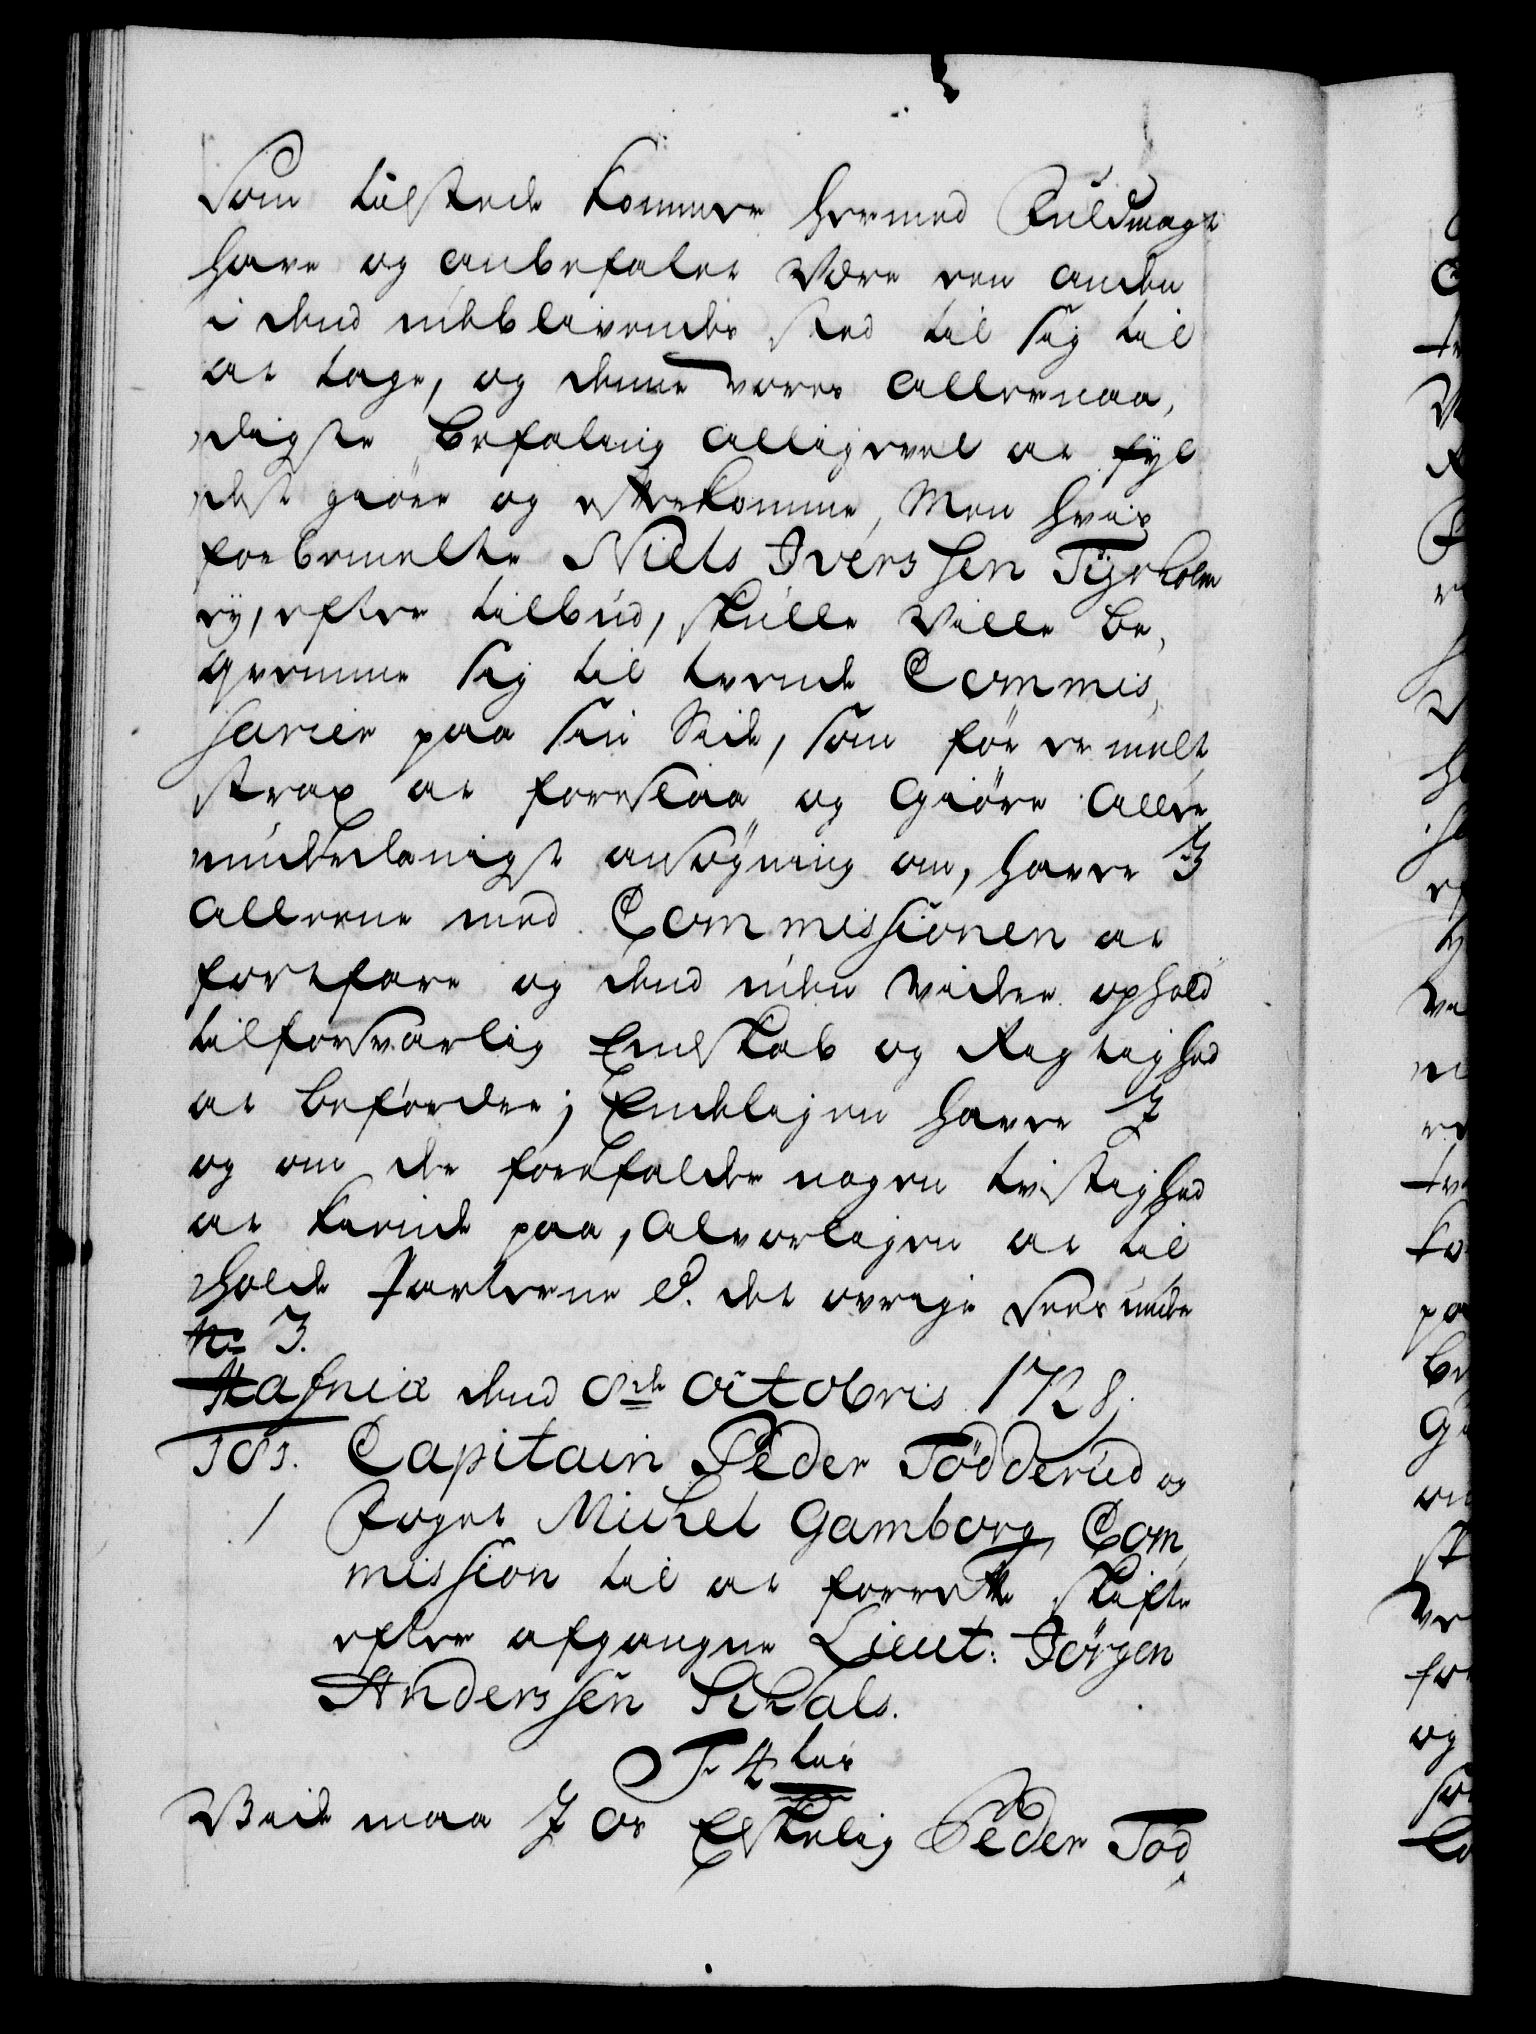 Som tilstede kommer hermed Fuldmagt
have og anbefalet være een anden
i dend udeblivendes sted til sig til
at tage, og denne vores allernaa,
digste befaling alligevel at fyl
dest giøre og efterkomme, Men hvis
forbemelte Niels Iverssen Tyrholm
ey, efter tilbud, skulle ville be,
qvemme sig til tvende Commis,
sarier paa sin Side, som før er melt
strax at foreslaa og giøre aller
underdanigst ansøgning om, haver I
allene med Commissionen at
fortfare og dend uden videre ophold
til forsvarlig Endskab og Rigtighed
at befordre; Endeligen haver I
og om der forefalder nogen tvistighed
at kiende paa, alvorligen at til
holde Parterne &. det øvrige sees under
No 3.
Hafniæ dend 8de octobris 1728.
Capitain Peder Tødderud og
1 Foget Michel Gamborg, Com,
mission til at forrette Skifte
efter afgangne Lieut: Jørgen
Anderssen Schals.
F. 4tus
Vide maa I Os Elskelig Peder Tød,